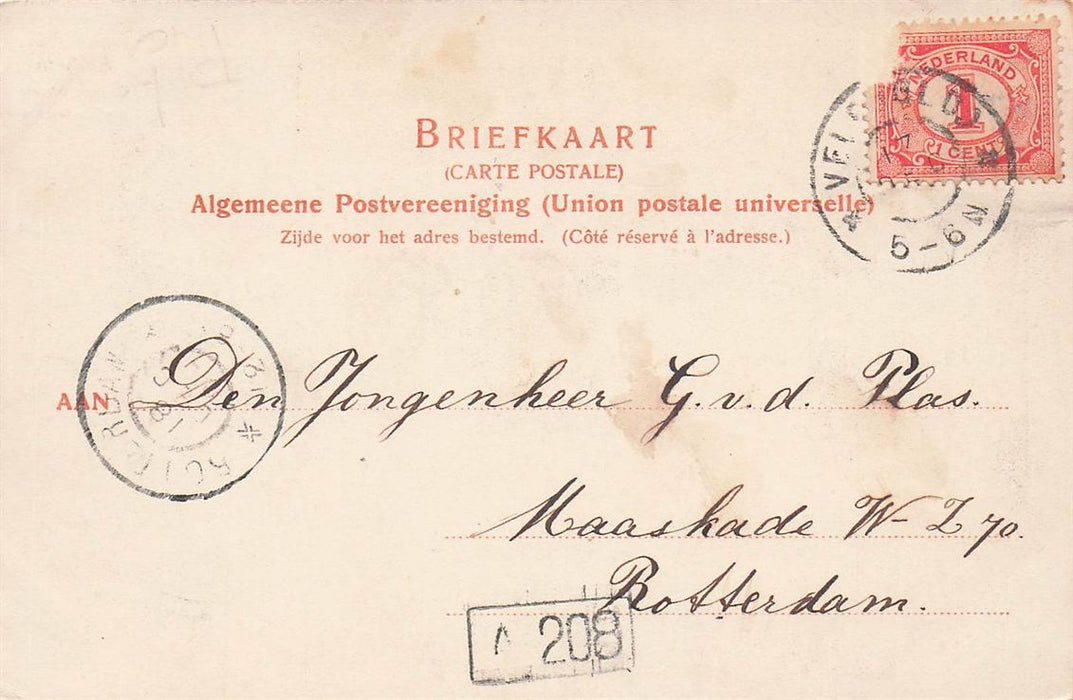 NEDERLAND
1
1 CENT
BRIEFKAART
(CARTE POSTALE)
Algemeene Postvereeniging (Union postale universelle)
Zijde voor het adres bestemd. (Côté réservé à l'adresse.)
5-6N
AAN Den Jongenheer G. v. d. Plas.
Maaskade W-Z 70.
Rotterdam.
A 208